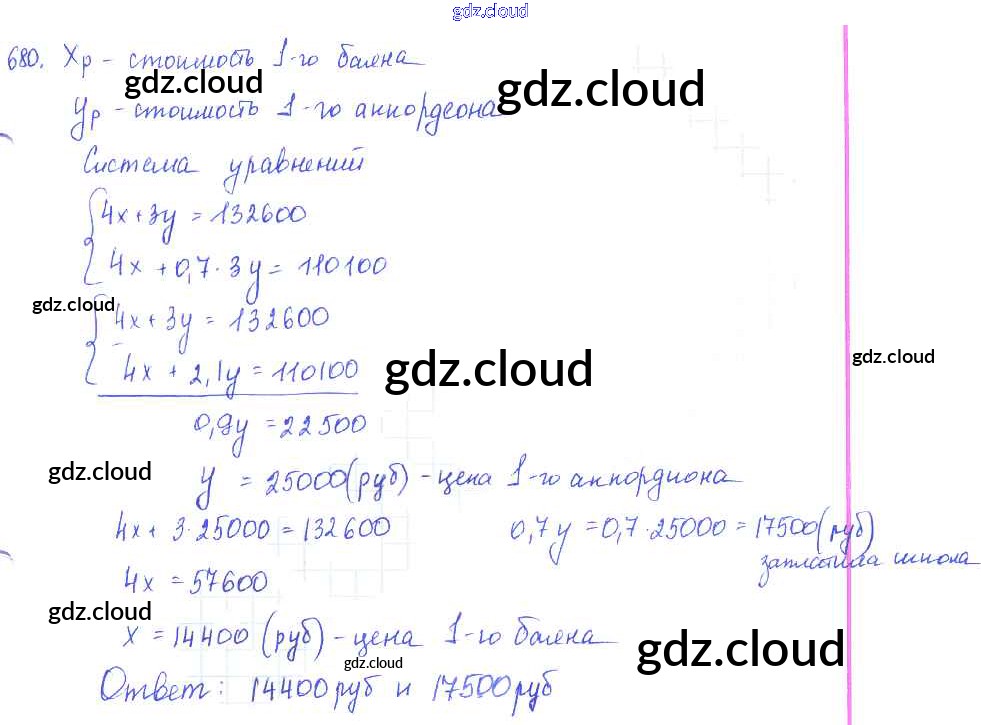 gdz.cloud
680. Xр - стоимость 1-го баяна
gdz.cloud
gdz.cloud
Yр - стоимость 1-го аккордеона
Система уравнений
4x+3y = 132600
4x + 0,7·3y = 110100
gdz.cloud
4x + 3y = 132600
gdz.cloud
- 4x + 2,1y = 110100
gdz.cloud
0,9y = 22500
gdz.cloud
y = 25000(руб) - цена 1-го аккордиона
4x + 3·25000 = 132600 0,7y = 0,7·25000 = 17500(руб)
заплатила школа
4x = 57600
gdz.cloud
x = 14400 (руб) - цена 1-го баяна
gdz.cloud
gdz.cloud
Ответ: 14400 руб и 17500 руб